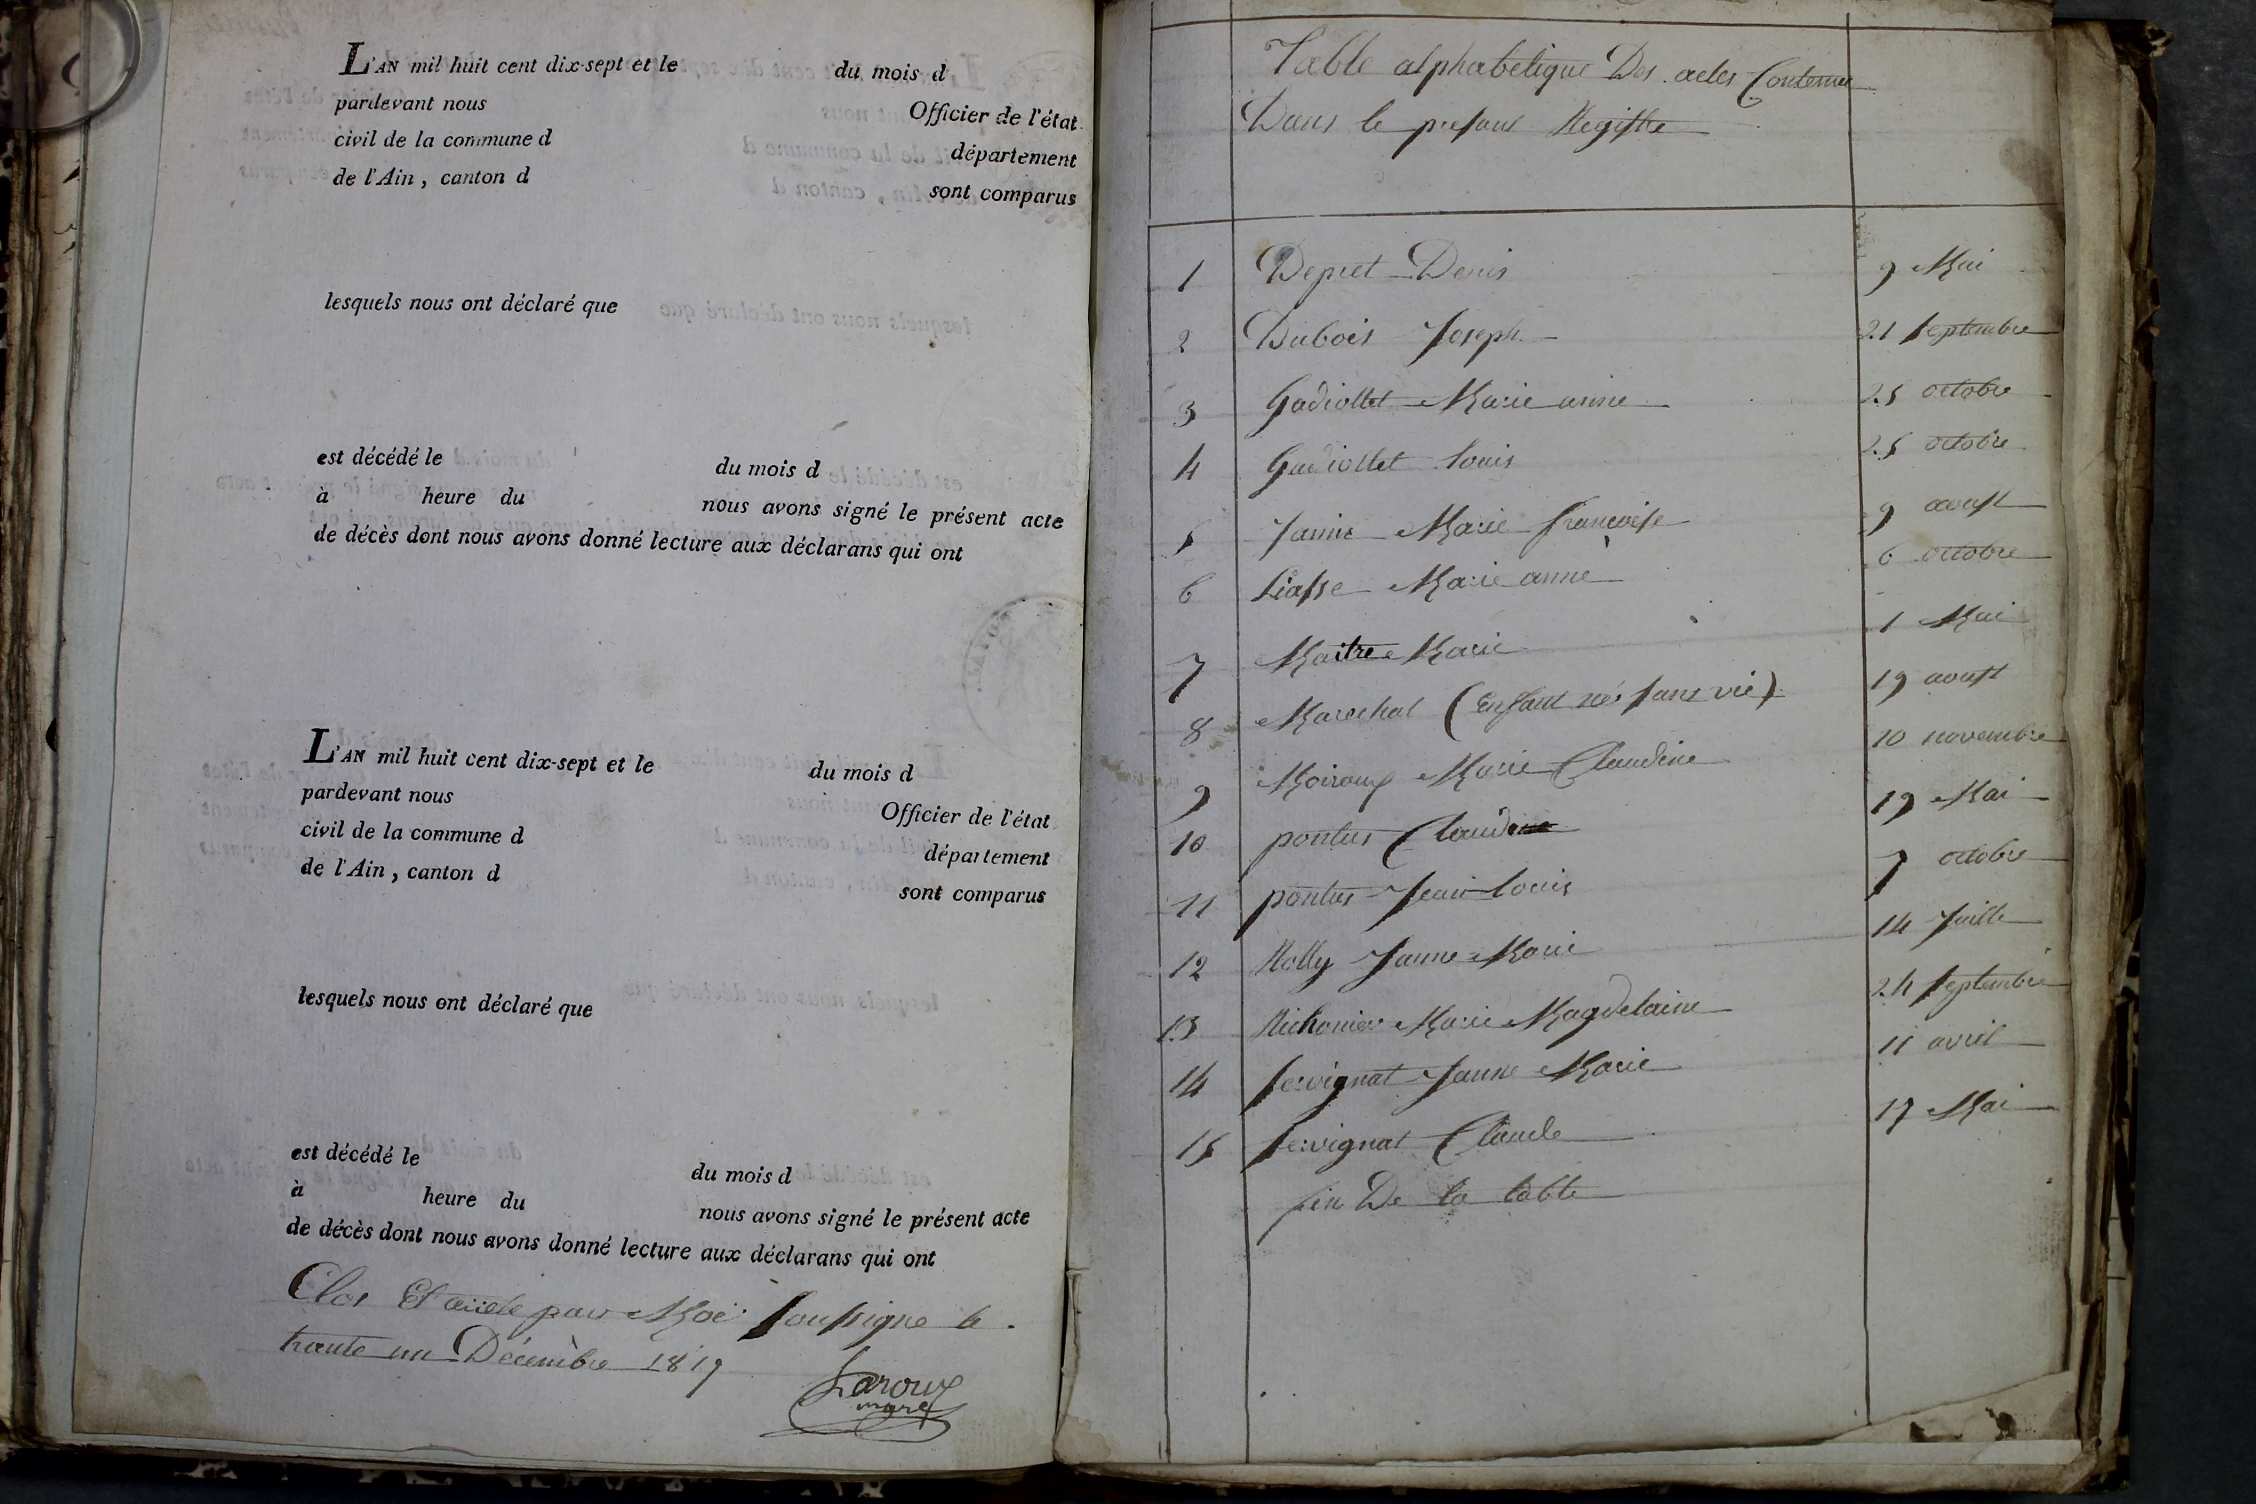 L'AN mil huit cent dix-sept et le du mois d
pardevant nous Officier de l'état
civil de la commune d département
de l'Ain, canton d sont comparus
lesquels nous ont déclaré que
est décédé le du mois d
à heure du nous avons signé le présent acte
de décès dont nous avons donné lecture aux déclarans qui ont
L'AN mil huit cent dix-sept et le du mois d
pardevant nous Officier de l'état
civil de la commune d département
de l'Ain, canton d sont comparus
lesquels nous ont déclaré que
est décédé le du mois d
à heure du nous avons signé le présent acte
de décès dont nous avons donné lecture aux déclarans qui ont
Clos Et arrete par Moi soussigne le
trante un Décembre 1817
Laroux
mare
Table alphabetique Des actes Contenu
Dans le presant Registre
1 Depret Denis 9 Mai
2 Dubois Joseph 21 septembre
3 Gadiollet Marie anne 25 octobre
4 Gadiollet Louis 25 octobre
5 Janin Marie francoise 9 aoust
6 Liasse Marie anne 6 octobre
7 Maitre Marie 1 Mai
8 Marechal (Enfant nés sans vie) 19 aoust
9 Moiroux Marie Claudine 10 novembre
10 pontus Claudine 19 Mai
11 pontus Jean Louis 7 octobre
12 Rolly Janne Marie 14 Juille
13 Richonier Marie Magdelaine 24 septembre
14 servignat Janne Marie 11 avril
15 servignat Claude 17 Mai
fin De la table